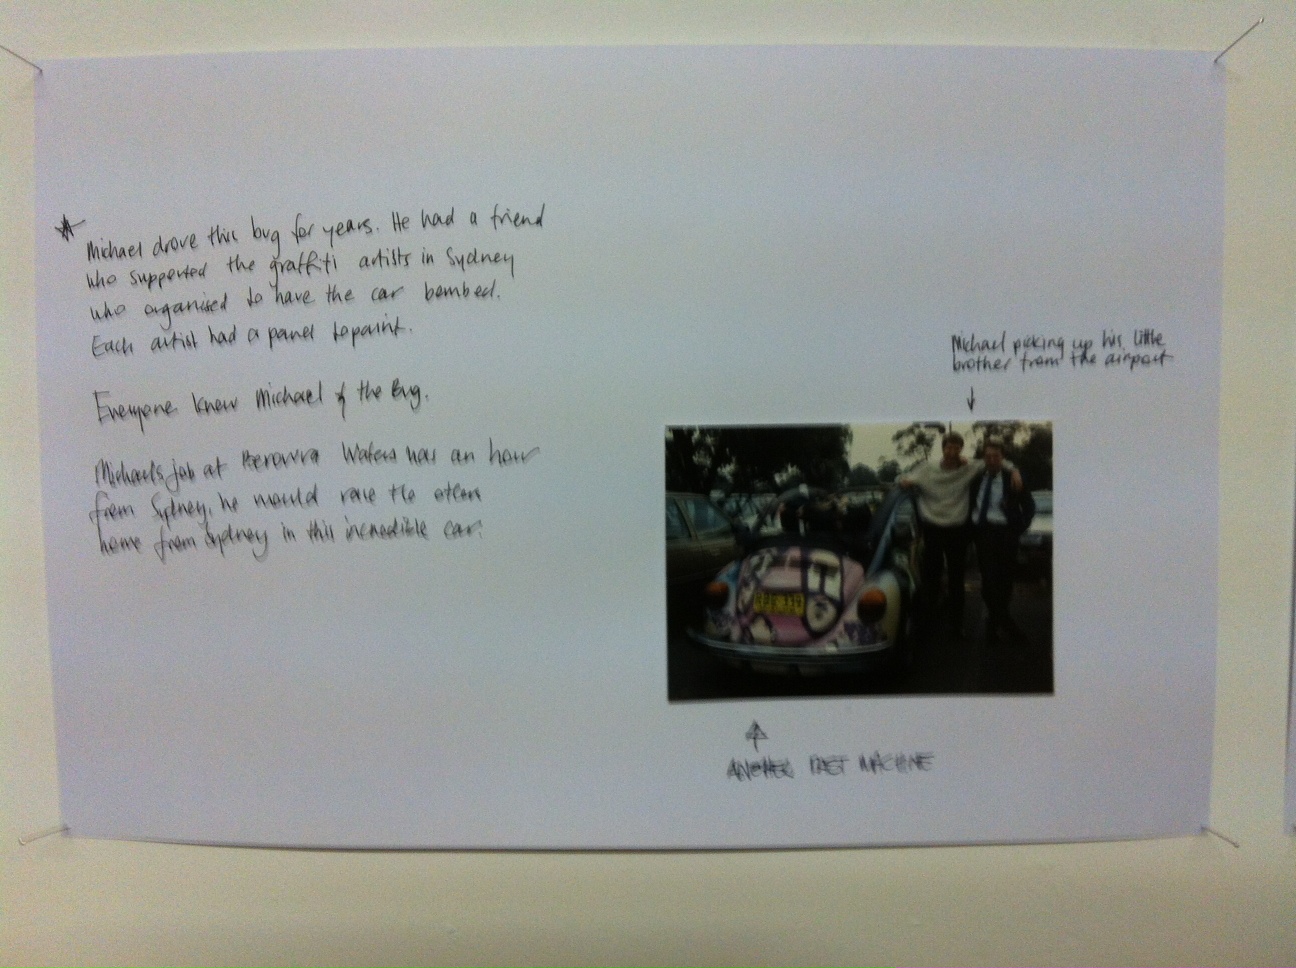 Michael drove this bug for years. He had a friend
who supported the graffiti artists in Sydney
who organised to have the car bombed.
Each artist had a panel to paint.
Everyone knew Michael & the Bug.
Michaels job at Berowra Waters was an hour
from Sydney, he would race the others
home from Sydney in this incredible car.
Michael picking up his little
brother from the airport
ANOTHER FAST MACHINE